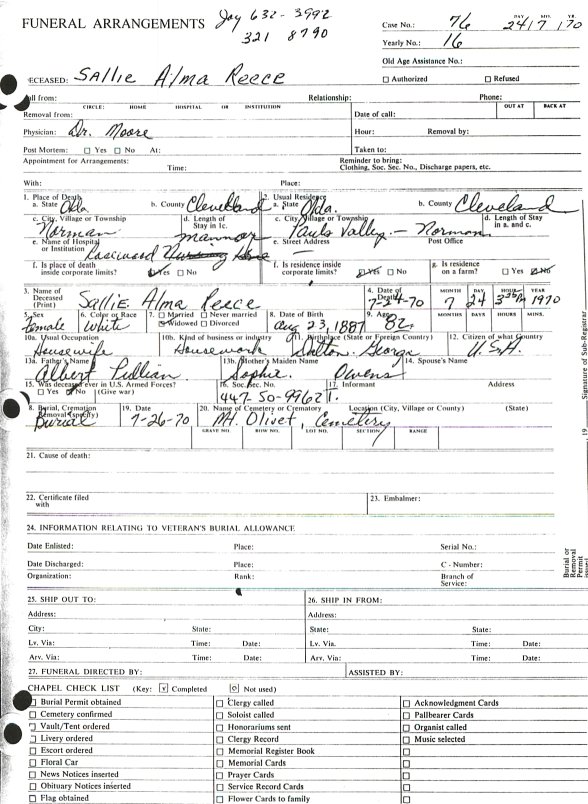 FUNERAL ARRANGEMENTS Jay 632-3992
321 8790
Case No.: 76 DAY MO. YR. 24 | 7 | 70
Yearly No.: 16
Old Age Assistance No.:
DECEASED: Sallie Alma Reece ☐ Authorized ☐ Refused
Call from: Relationship: Phone:
CIRCLE: HOME HOSPITAL OR INSTITUTION OUT AT BACK AT
Removal from: Date of call:
Physician: Dr. Moore Hour: Removal by:
Post Mortem: ☐ Yes ☐ No At: Taken to:
Appointment for Arrangements: Reminder to bring:
Time: Clothing, Soc. Sec. No., Discharge papers, etc.
With: Place:
1. Place of Death 2. Usual Residence
a. State Okla b. County Cleveland a. State Okla. b. County Cleveland
c. City, Village or Township d. Length of Stay in 1c. c. City, Village or Township d. Length of Stay in a. and c.
Norman mannor Pauls Valley - Norman
e. Name of Hospital or Institution e. Street Address Post Office
Nursing Home
f. Is place of death inside corporate limits? ☑ Yes ☐ No f. Is residence inside corporate limits? ☑ Yes ☐ No g. Is residence on a farm? ☐ Yes ☑ No
3. Name of Deceased (Print) Sallie Alma Reece 4. Date of Death 7-24-70 MONTH 7 DAY 24 HOUR YEAR 1970
5. Sex Female 6. Color or Race White 7. ☐ Married ☐ Never married ☑ Widowed ☐ Divorced 8. Date of Birth Aug 23, 1887 9. Age 82 MONTHS DAYS HOURS MINS.
10a. Usual Occupation 10b. Kind of business or industry 11. Birthplace (State or Foreign Country) 12. Citizen of what Country
Housewife Housework Georga U.S.A.
13a. Father's Name 13b. Mother's Maiden Name 14. Spouse's Name
Albert Pullian Sophie Owens
15. Was deceased ever in U.S. Armed Forces? 16. Soc. Sec. No. 17. Informant Address
☐ Yes ☑ No (Give war) 447-50-9962 T.
18. Burial, Cremation Removal (Specify) 19. Date 20. Name of Cemetery or Crematory Location (City, Village or County) (State)
Burial 7-26-70 Mt. Olivet, Cemetery
GRAVE NO. ROW NO. LOT NO. SECTION RANGE
21. Cause of death:
22. Certificate filed with 23. Embalmer:
24. INFORMATION RELATING TO VETERAN'S BURIAL ALLOWANCE
Date Enlisted: Place: Serial No.:
Date Discharged: Place: C - Number:
Organization: Rank: Branch of Service:
25. SHIP OUT TO: 26. SHIP IN FROM:
Address: Address:
City: State: State: State:
Lv. Via: Time: Date: Lv. Via: Time: Date:
Arv. Via: Time: Date: Arv. Via: Time: Date:
27. FUNERAL DIRECTED BY: ASSISTED BY:
CHAPEL CHECK LIST (Key: ☑ Completed ☐ Not used)
☐ Burial Permit obtained ☐ Clergy called ☐ Acknowledgment Cards
☐ Cemetery confirmed ☐ Soloist called ☐ Pallbearer Cards
☐ Vault/Tent ordered ☐ Honorariums sent ☐ Organist called
☐ Livery ordered ☐ Clergy Record ☐ Music selected
☐ Escort ordered ☐ Memorial Register Book ☐
☐ Floral Car ☐ Memorial Cards ☐
☐ News Notices inserted ☐ Prayer Cards ☐
☐ Obituary Notices inserted ☐ Service Record Cards ☐
☐ Flag obtained ☐ Flower Cards to family ☐
19 Signature of Sub-Registrar
Burial or Removal Permit issued